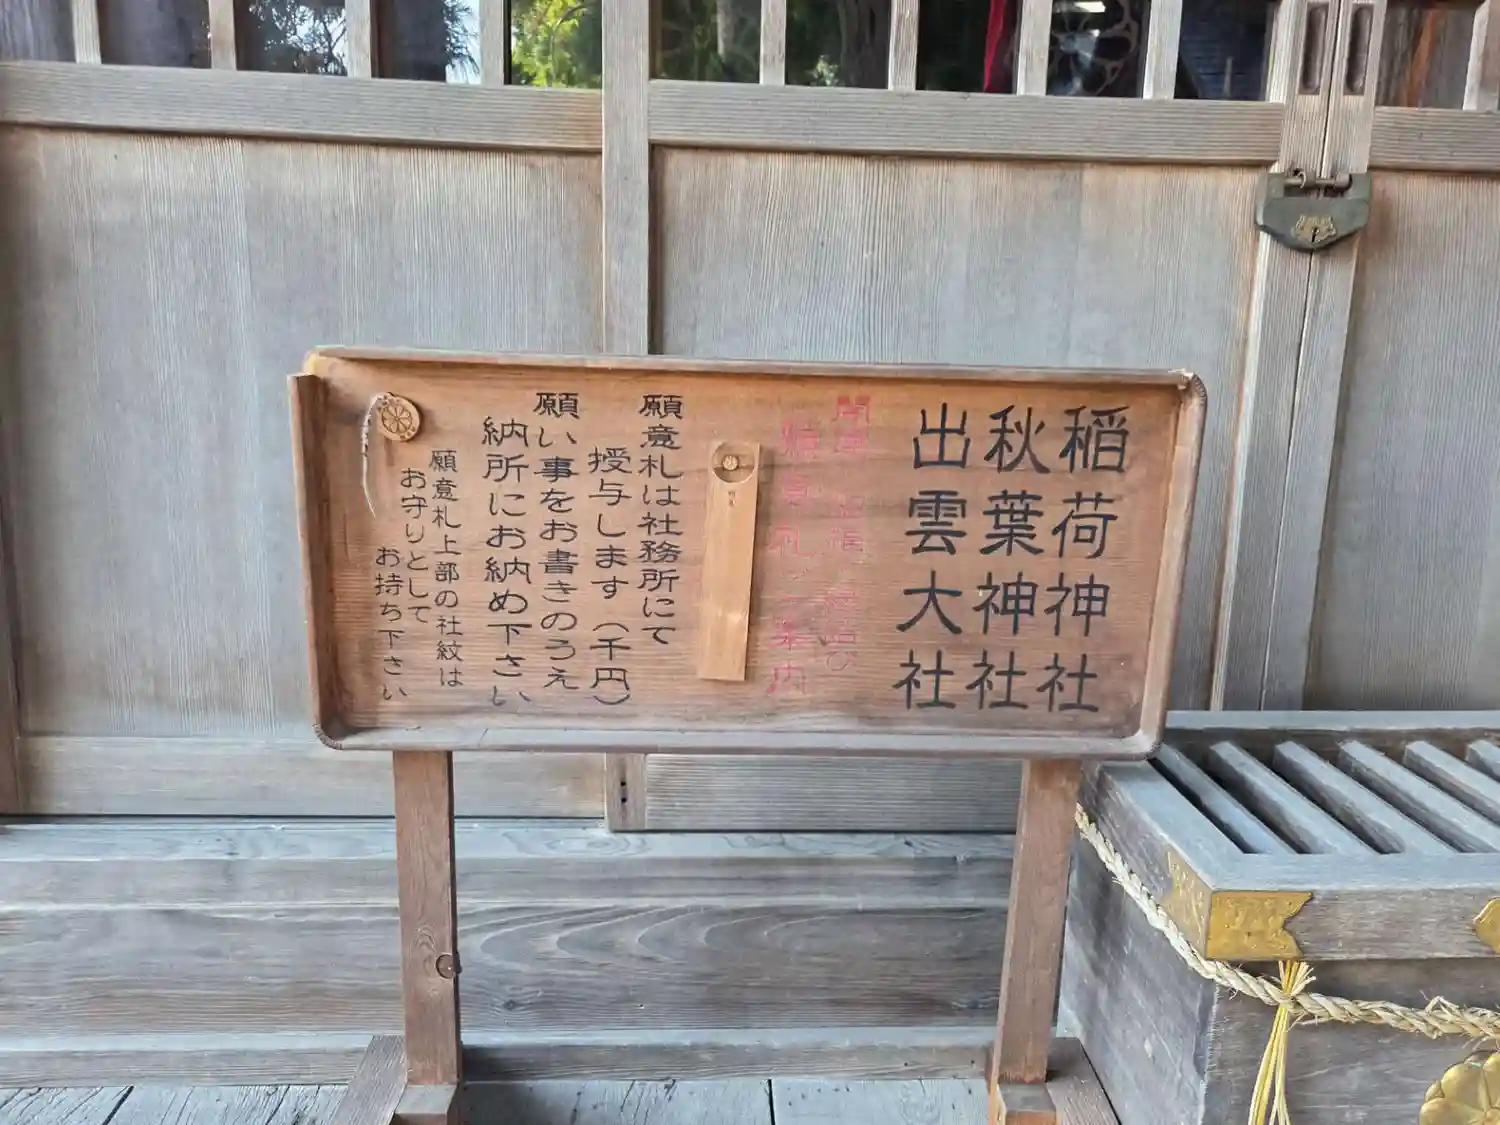 稲荷神社
秋葉神社
出雲大社
開運 招福 縁結び
願意札ご案内
願意札は社務所にて
授与します（千円）
願い事をお書きのうえ
納所にお納め下さい
願意札上部の社紋は
お守りとして
お持ち下さい